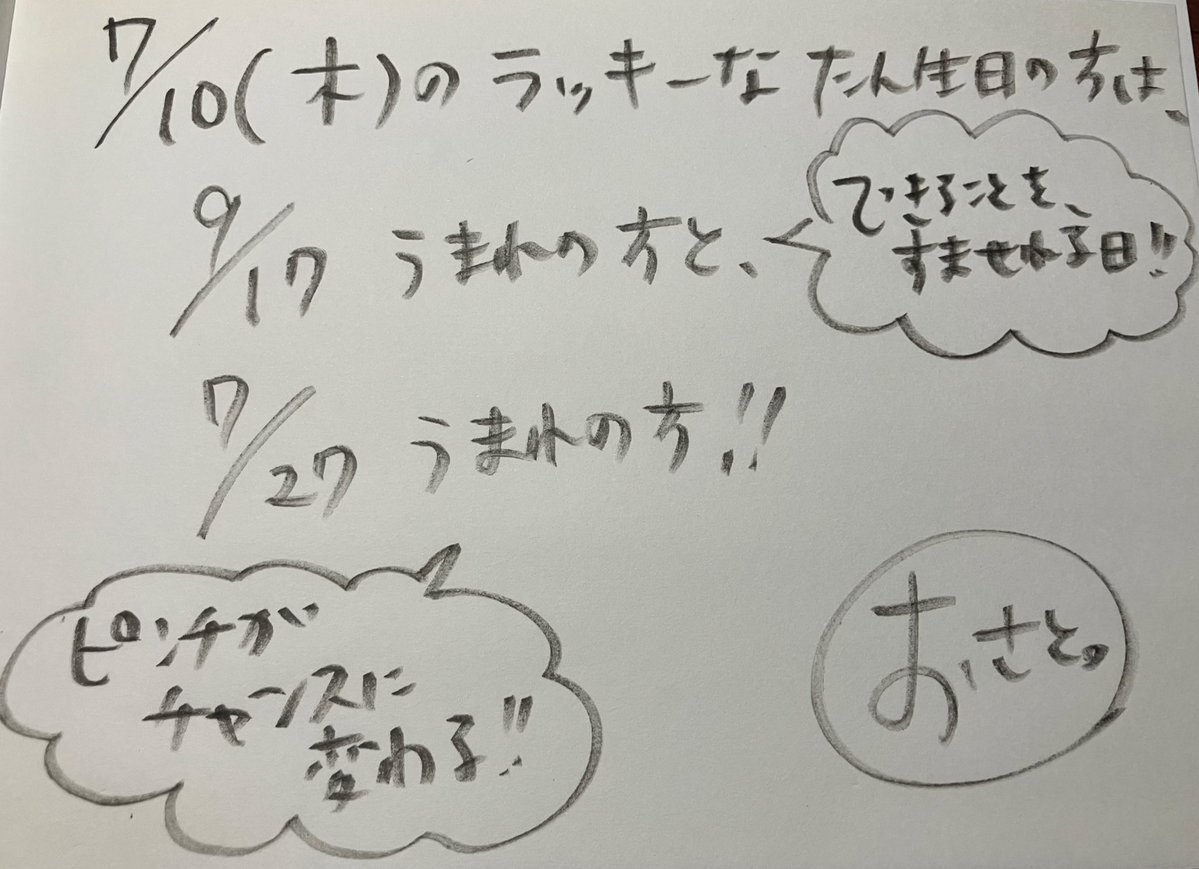 7/10(木)のラッキーなたん生日の方は、
9/17 うまれの方と、
できることを、
すませれる日!!
7/27 うまれの方!!
ピンチが
チャンスに
変わる!!
おさと。